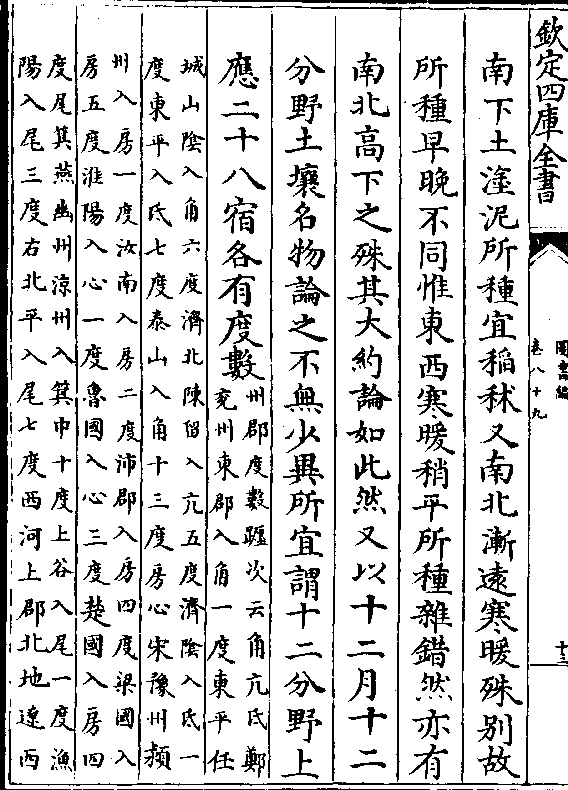 欽定四庫全書
圖書編
卷八十九
十三
南下土塗泥所種宜稻秫又南北漸遠寒暖殊別故
所種早晚不同惟東西寒暖稍平所種雜錯然亦有
南北高下之殊其大約論如此然又以十二月十二
分野土壤名物論之不無少異所宜謂十二分野上
應二十八宿各有度數
州郡度數躔次云角亢氐鄭
兗州東郡入角一度東平任
城山陰入角六度濟北陳留入亢五度濟陰入氐一
度東平入氐七度泰山入角十三度房心宋豫州潁
州入房一度汝南入房二度沛郡入房四度梁國入
房五度淮陽入心一度魯國入心三度楚國入房四
度尾箕燕幽州涼州入箕中十度上谷入尾一度漁
陽入尾三度右北平入尾七度西河上郡北地遼西